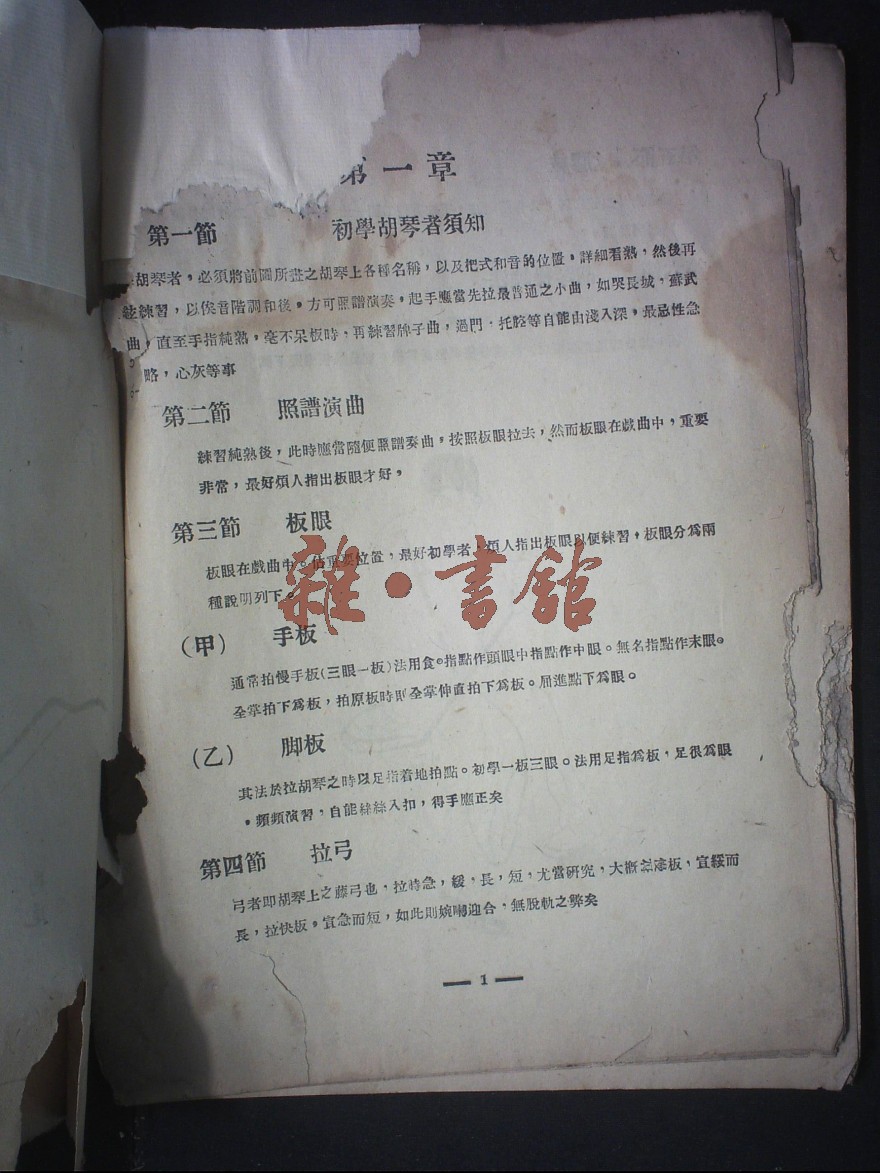 第一章
第一節 初學胡琴者須知
胡琴者，必須將前圖所畫之胡琴上各種名稱，以及把式和音的位置。詳細看熟，然後再
練習，以俟音階調和後。方可照譜演奏。起手應當先拉最普通之小曲，如哭長城，蘇武
曲，直至手指純熟。毫不呆板時，再練習牌子曲，過門，托腔等自能由淺入深。最忌性急
略，心灰等事
第二節 照譜演曲
練習純熟後，此時應當隨便照譜奏曲。按照板眼拉去，然而板眼在戲曲中，重要
非常，最好煩人指出板眼才好。
第三節 板眼
板眼在戲曲中。佔重要位置，最好初學者，煩人指出板眼以便練習，板眼分爲兩
種說明列下。
（甲） 手板
通常拍慢手板（三眼一板）法用食。指點作頭眼中指點作中眼。無名指點作末眼。
全掌拍下爲板，拍原板時則全掌伸直拍下爲板。屈進點下爲眼。
（乙） 脚板
其法於拉胡琴之時以足指着地拍點。初學一板三眼。法用足指爲板，足很爲眼
。頻頻演習，自能絲絲入扣，得手應正矣
第四節 拉弓
弓者即胡琴上之藤弓也，拉時急，緩，長，短，尤當研究，大概 板，宜緩而
長，拉快板。宜急而短，如此則婉囀迎合，無脫軌之弊矣
1
雜·書館